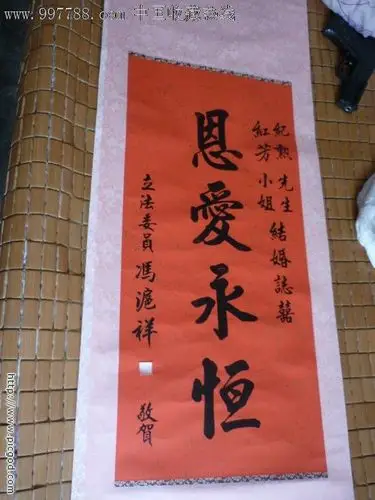 www.997788.com 中国收藏热线
紀勲先生
紅芳小姐 結婚誌囍
恩愛永恒
立法委員馮滬祥 敬賀